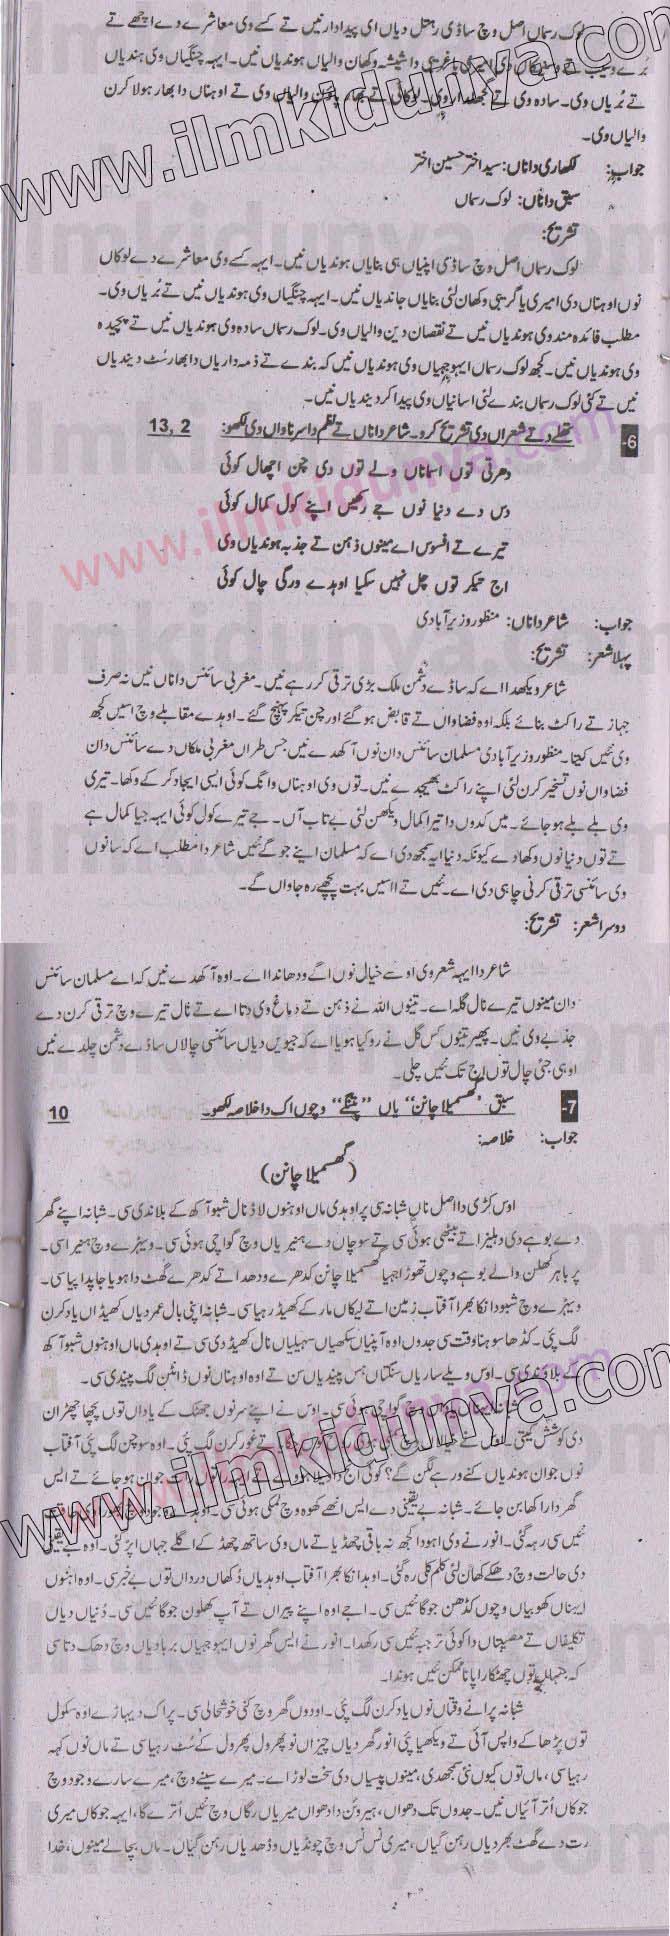 لوک رسماں اصل وچ ساڈی رہتل دیاں ای پیداوار نیں تے کسے وی معاشرے دے اچھے تے
بُرے وسیب تے لوکاں دی امیری یا غریبی دا شیشہ وکھان والیاں ہوندیاں نیں۔ ایہہ چنگیاں وی ہندیاں
تے بُریاں وی۔ سادہ وی تے گنجھلدار وی۔ لوکائی تے بھار پاون والیاں وی تے اوہناں دا بھار ہولا کرن
والیاں وی۔
جواب: لکھاری دا ناں: سید اختر حسین اختر
سبق دا ناں: لوک رسماں
تشریح:
لوک رسماں اصل وچ ساڈی اپنیاں ہی بنایاں ہوندیاں نیں۔ ایہہ کسے وی معاشرے دے لوکاں
نوں اوہناں دی امیری یا گریبی وکھان لئی بنایاں جاندیاں نیں۔ ایہہ چنگیاں وی ہوندیاں نیں تے بُریاں وی۔
مطلب فائدہ مند وی ہوندیاں نیں تے نقصان دین والیاں وی۔ لوک رسماں سادہ وی ہوندیاں نیں تے پیچیدہ
وی ہوندیاں نیں۔ کجھ لوک رسماں ایہو جہیاں وی ہوندیاں نیں کہ بندے تے ذمہ داریاں دا بھار سُٹ دیندیاں
نیں تے کئی لوک رسماں بندے لئی اسانیاں وی پیدا کر دیندیاں نیں۔
6- تھلے دتے شعراں دی تشریح کرو۔ شاعر دا ناں تے نظم دا سرناواں وی لکھو: 13,2
دھرتی توں اسماناں ولے توں دی چن اچھال کوئی
دس دے دنیا نوں جے رکھیں اپنے کول کمال کوئی
تیرے تے افسوس اے مینوں ذہن تے جذبہ ہوندیاں وی
اج تیکر توں چل نہیں سکیا اوہدے ورگی چال کوئی
جواب: شاعر دا ناں: منظور وزیر آبادی
پہلا شعر: تشریح:
شاعر ویکھدا اے کہ ساڈے دشمن ملک بڑی ترقی کر رہے نیں۔ مغربی سائنس داناں نیں نہ صرف
جہاز تے راکٹ بنائے بلکہ اوہ فضاواں تے قابض ہو گئے اور چن تیکر پہنچ گئے۔ اوہدے مقابلے وچ اسیں کجھ
وی نئیں کیتا۔ منظور وزیر آبادی مسلمان سائنس دان نوں آکھدے نیں جس طراں مغربی ملکاں دے سائنس دان
فضاواں نوں تسخیر کرن لئی اپنے راکٹ بھیجدے نیں۔ توں وی اوہناں وانگ کوئی ایسی ایجاد کر کے وکھا۔ تیری
وی بلے بلے ہو جائے۔ میں کدوں دا تیرا کمال ویکھن لئی بے تاب آں۔ جے تیرے کول کوئی ایہہ جیا کمال ہے
تے توں دنیا نوں وکھا دے کیونکہ دنیا ایہہ سمجھدی اے کہ مسلمان اپنے جوگے نیں شاعر دا مطلب اے کہ سانوں
وی سائنسی ترقی کرنی چاہی دی اے۔ نئیں تے اسیں بہت پچھے رہ جاواں گے۔
دوسرا شعر: تشریح:
شاعر دا ایہہ شعر وی اوسے خیال نوں اگے ودھاندا اے۔ اوہ آکھدے نیں کہ اے مسلمان سائنس
دان مینوں تیرے نال گلہ اے۔ تینوں اللہ نے ذہن تے دماغ وی دتا اے تے نال تیرے وچ ترقی کرن دے
جذبے وی نیں۔ پھیر تینوں کس گل نے روکیا ہویا اے کہ جیویں دیاں سائنسی چالاں ساڈے دشمن چلدے نیں
اوہی جئی چال توں اج تک نئیں چلی۔
7- سبق "گھسمیلا چانن" یاں "پتنگے" وچوں اک دا خلاصہ لکھو۔ 10
جواب: خلاصہ:
(گھسمیلا چانن)
اوس کڑی دا اصل ناں شبانہ سی پر اوہدی ماں اوہنوں لاڈ نال شبو آکھ کے بلاندی سی۔ شبانہ اپنے گھر
دے بوہے دی دہلیز اتے بیٹھی ہوئی سی تے سوچاں دے ہنیریاں وچ گواچی ہوئی سی۔ ویہڑے وچ ہنیرا سی۔
پر باہر کھلن والے بوہے وچوں تھوڑا جہیا گھسمیلا چانن کدھرے ودھدا تے کدھرے گھٹ دا ہویا جاپدا پیا سی۔
ویہڑے وچ شبو دا نکا بھرا آفتاب زمین اتے لیکاں مار کے کھیڈ رہیا سی۔ شبانہ اپنی بال عمر دیاں کھیڈاں یاد کرن
لگ پئی۔ کڈھا سوہنا وقت سی جدوں اوہ آپنیاں سکھیاں سہیلیاں نال کھیڈ دی سی تے اوہدی ماں اوہنوں شبو آکھ
کے بلاؤندی سی۔ اوس ویلے ساریاں سنگتاں ہس پیندیاں سن تے اوہ اوہناں نوں ڈانٹن لگ پیندی سی۔
گواچی ہوئی سی۔ اوس نے اپنے سر نوں جھٹک کے یاداں توں پچھا چھڑان
دی کوشش کیتی۔ تے غور کرن لگ پئی۔ اوہ سوچن لگ پئی آفتاب
نوں جوان ہوندیاں کنے ورہے لگن گے؟ جوان ہو جائے تے ایس
گھر دا راکھا بن جائے۔ شبانہ بے یقینی دے ایس انھے کھوہ وچ لمکی ہوئی سی۔
نئیں سی رہ گئی۔ انور نے وی اوہدا کجھ نہ باقی چھڈیا تے ماں وی ساتھ چھڈ کے اگلے جہاں اپڑ گئی۔ اوہ بے یقینی
دی حالت وچ دھکے کھان لئی کلم کلی رہ گئی۔ اوہدا نکا بھرا آفتاب اوہدیاں دُکھاں درداں توں بے خبر سی۔ اوہ اوہنوں
ایہناں کھوبیاں وچوں کڈھن جوگا نئیں سی۔ اجے اوہ اپنے پیراں تے آپ کھلون جوگا نئیں سی۔ دُنیاں دیاں
تکلیفاں تے مصیبتاں دا کوئی ترجبہ نئیں سی رکھدا۔ انور نے ایس گھر نوں ایہو جہیاں بربادیاں وچ دھک دتا سی
کہ جنہاں توں چھٹکارا پانا ممکن نئیں ہوندا۔
شبانہ پرانے وقتاں نوں یاد کرن لگ پئی۔ اودوں گھر وچ کنی خوشحالی سی۔ پر اک دیہاڑے اوہ سکول
توں پڑھا کے واپس آئی تے ویکھیا پئی انور گھر دیاں چیزاں نوں پھرول پھرول کے سُٹ رہیا سی تے ماں نوں کہہ
رہیا سی، ماں توں کیوں نئی سمجھدی، مینوں پیسیاں دی سخت لوڑ اے۔ میرے سینے وچ، میرے سارے وجود وچ
جوکاں اُتر آئیاں نیں۔ جدوں تک دھواں، ہیروئن دا دھواں میریاں رگاں وچ نئیں اُترے گا، ایہہ جوکاں میری
رت دے گھٹ بھردیاں رہن گیاں، میری نس نس وچ چونڈیاں وڈھدیاں رہن گیاں۔ ماں بچا لے مینوں، خدا
www.ilmkidunya.com
www.ilmkidunya.com
www.ilmkidunya.com